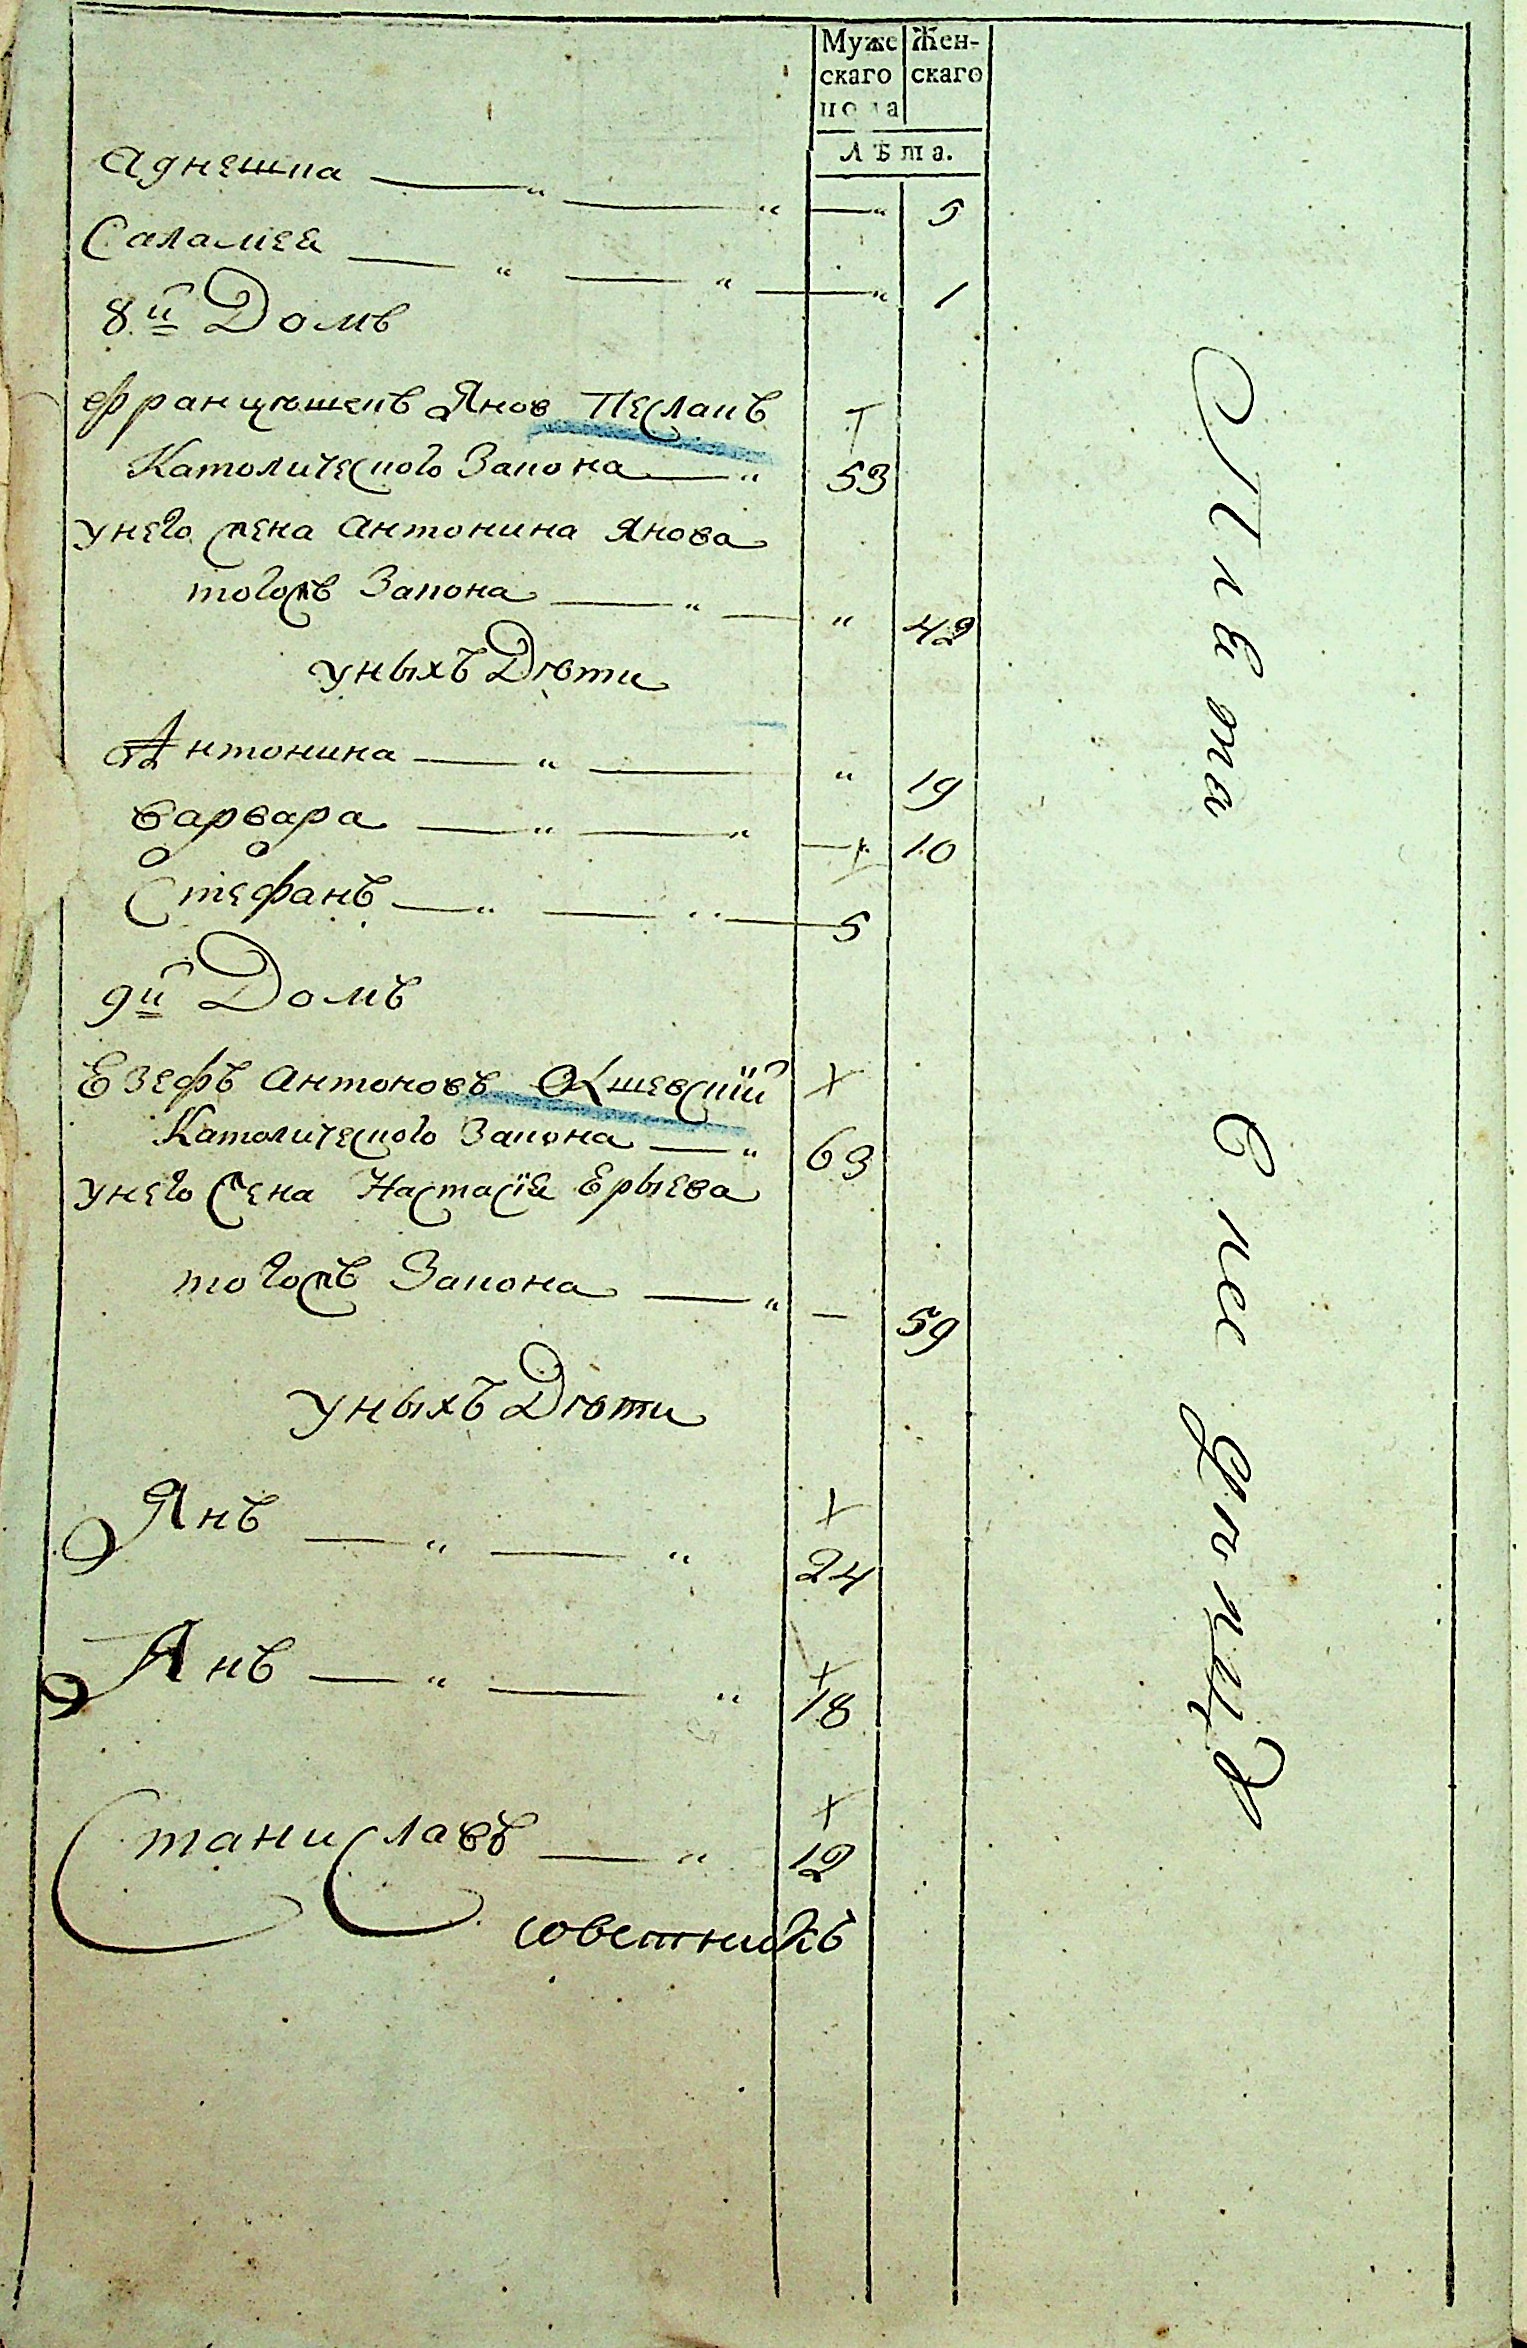 Муже Жен-
скаго скаго
пола
Лѣта.
Агнешка — " — " — " 5
Саламея — " — " — " 1
8й Домъ
Францышекъ Яновъ Песлакъ
Католического Закона — " 53
унего жена Антонина Янова
тогожъ Закона — " — " 42
уныхъ Дѣти
Антонина — " — " 19
Варвара — " — " — 10
Стефанъ — " — " — 5
9й Домъ
Езефъ Антоновъ Якшевскїй
Католического Закона — " 63
унего жена Настасїя Ерыева
тогожъ Закона — " — 59
уныхъ Дѣти
Янъ — " — " 24
Янъ — " — " 18
Станиславъ — " 12
советникъ